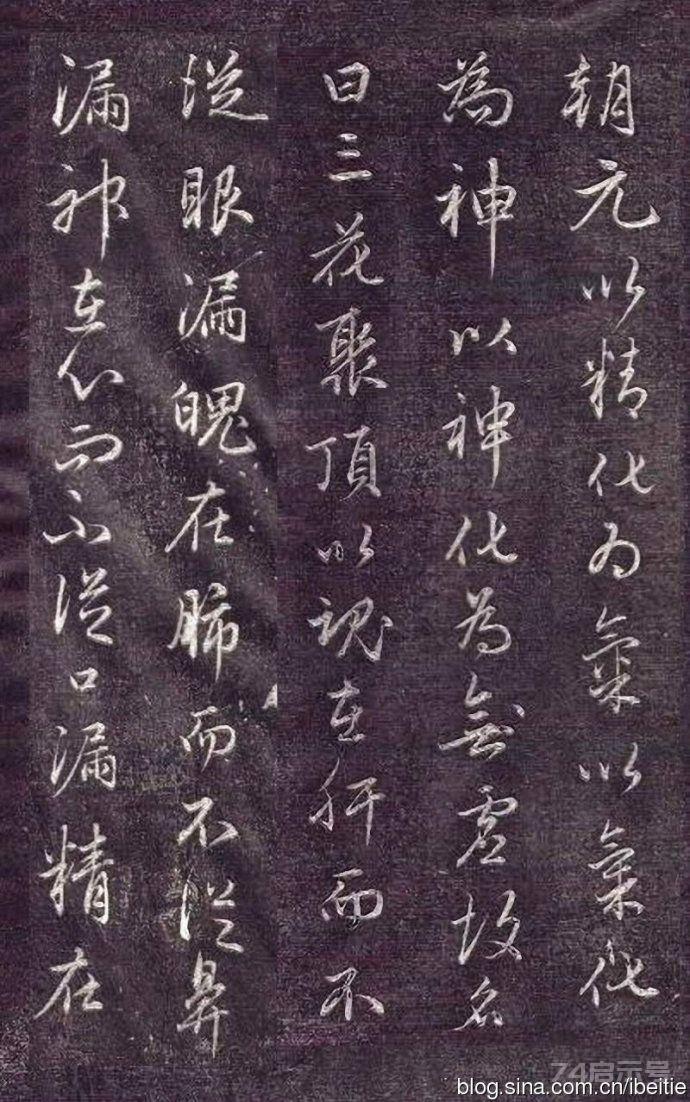 朝元以精化为氣以氣化
為神以神化為無虛故名
曰三花聚頂以魂在肝而不
從眼漏魄在肺而不從鼻
漏神在心而不從口漏精在
74启示号
blog.sina.com.cn/ibeitie